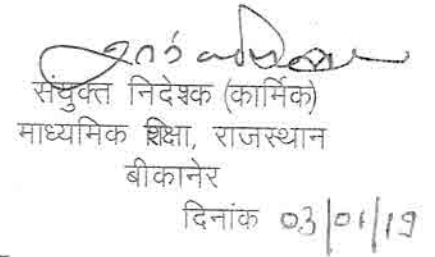 संयुक्त निदेशक (कार्मिक)
माध्यमिक शिक्षा, राजस्थान
बीकानेर
दिनांक 03/01/19